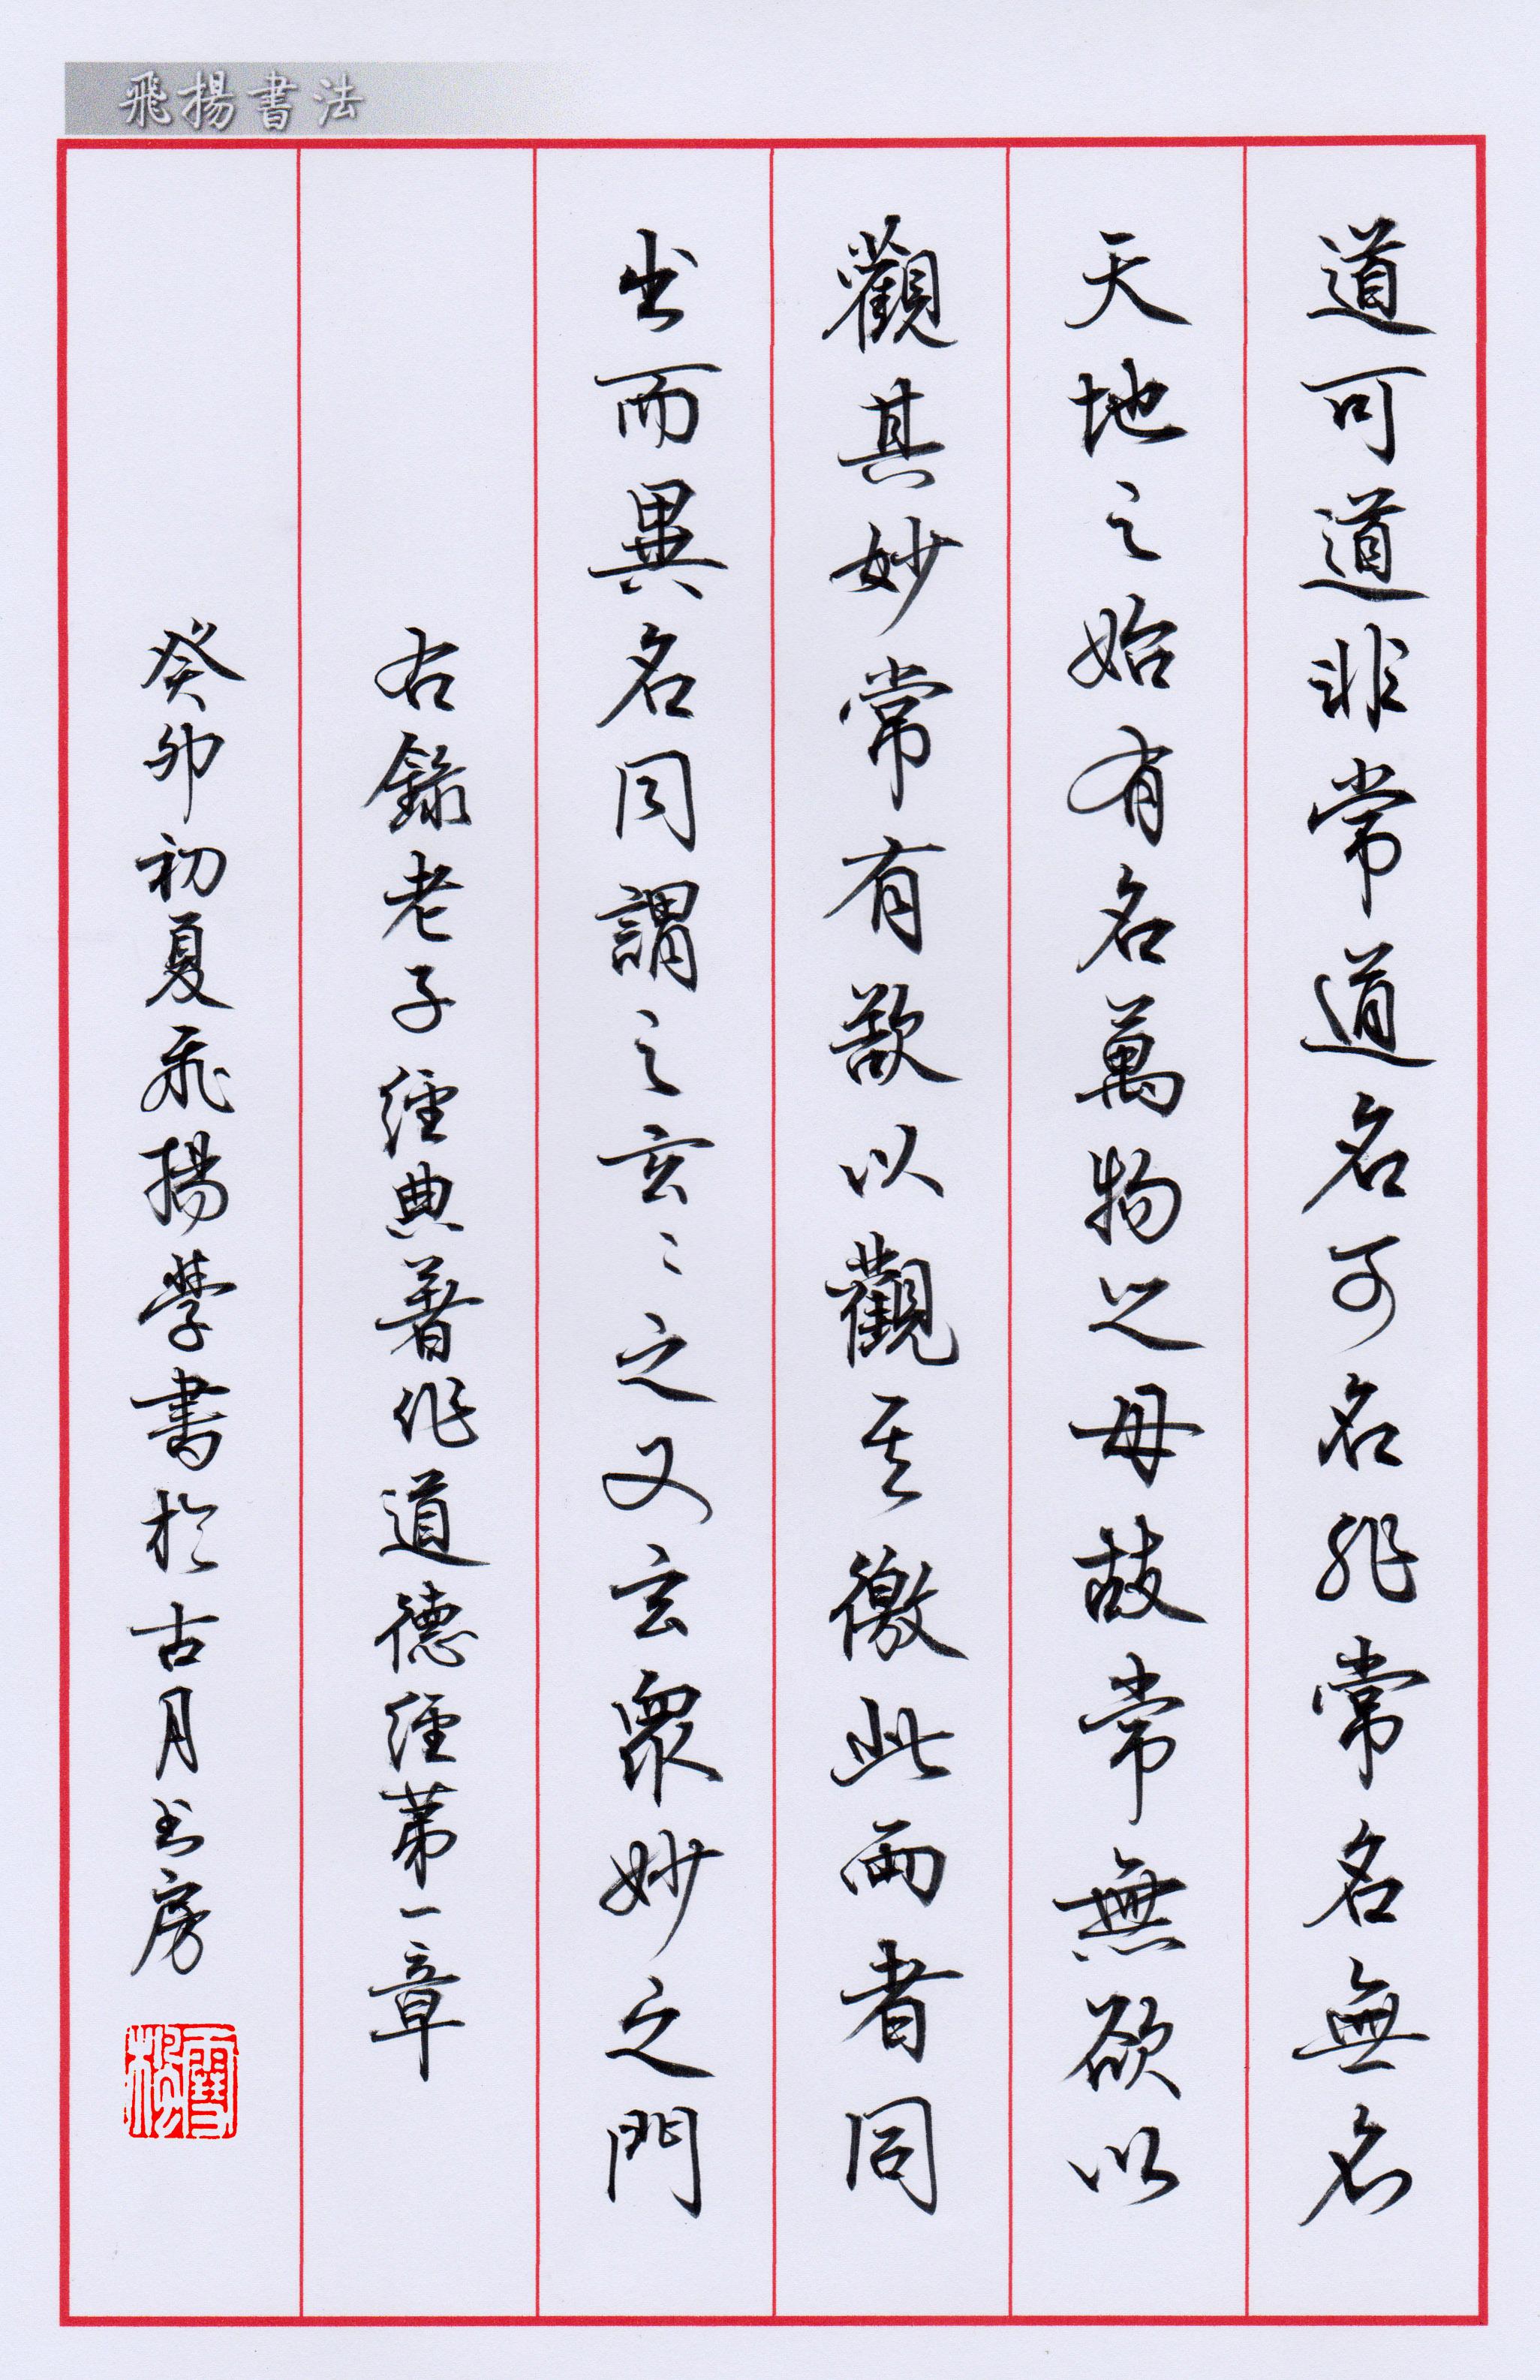 飛揚書法
道可道非常道名可名非常名無名
天地之始有名萬物之母故常無欲以
觀其妙常有欲以觀其徼此兩者同
出而異名同謂之玄〻之又玄眾妙之門
右錄老子經典著作道德經第一章
癸卯初夏飛揚學書於古月书房